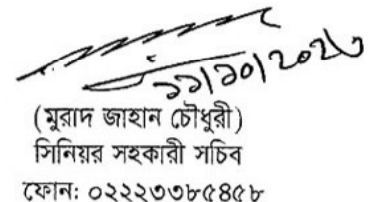 ২২/১০/২০২৩
(মুরাদ জাহান চৌধুরী)
সিনিয়র সহকারী সচিব
ফোন: ০২২২৩৩৮৫৪৫৮